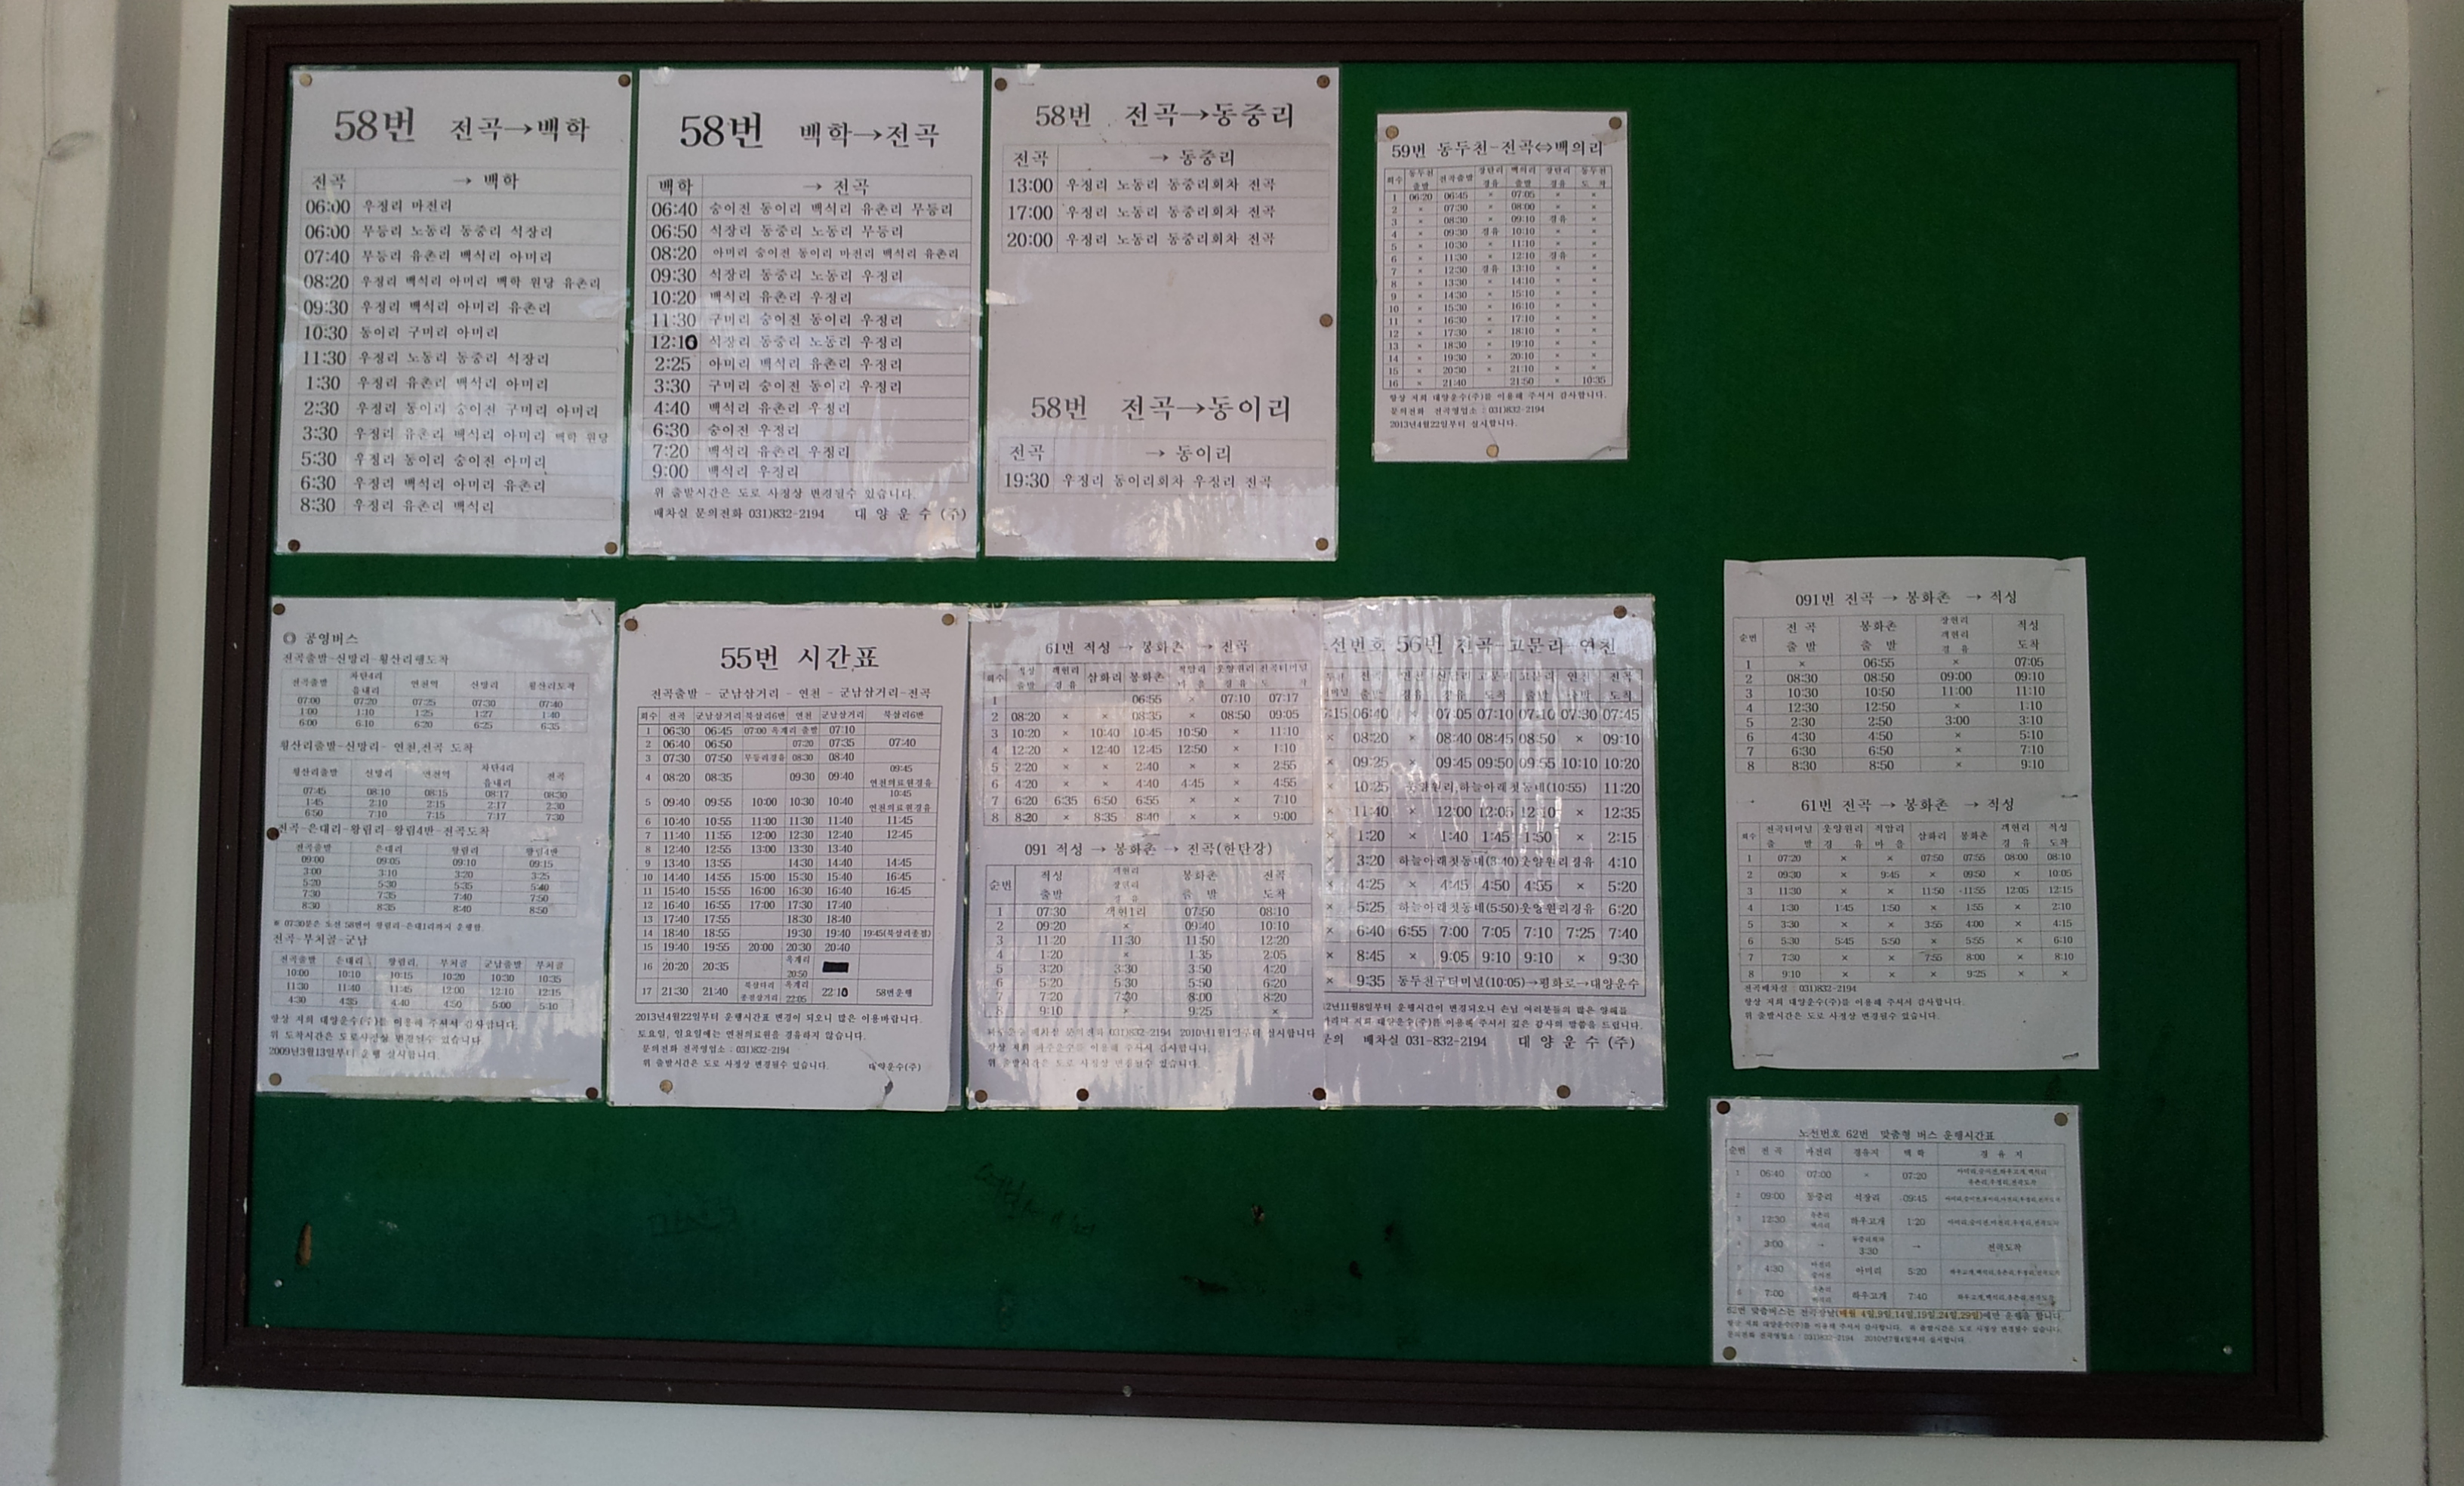 58번 전곡→백학
전곡 → 백학
06:00 우정리 마전리
06:00 무등리 노동리 동중리 석장리
07:40 무등리 유촌리 백석리 아미리
08:20 우정리 백석리 아미리 백학 원당 유촌리
09:30 우정리 백석리 아미리 유촌리
10:30 동이리 구미리 아미리
11:30 우정리 노동리 동중리 석장리
1:30 우정리 유촌리 백석리 아미리
2:30 우정리 동이리 숭이전 구미리 아미리
3:30 우정리 유촌리 백석리 아미리 백학 원당
5:30 우정리 동이리 숭이전 아미리
6:30 우정리 백석리 아미리 유촌리
8:30 우정리 유촌리 백석리
58번 백학→전곡
백학 → 전곡
06:40 숭이전 동이리 백석리 유촌리 무등리
06:50 석장리 동중리 노동리 무등리
08:20 아미리 숭이전 동이리 마전리 백석리 유촌리
09:30 석장리 동중리 노동리 우정리
10:20 백석리 유촌리 우정리
11:30 구미리 숭이전 동이리 우정리
12:10 석장리 동중리 노동리 우정리
2:25 아미리 백석리 유촌리 우정리
3:30 구미리 숭이전 동이리 우정리
4:40 백석리 유촌리 우정리
6:30 숭이전 우정리
7:20 백석리 유촌리 우정리
9:00 백석리 우정리
위 출발시간은 도로 사정상 변경될수 있습니다.
배차실 문의전화 031)832-2194 대 양 운 수 (주)
58번 전곡→동중리
전곡 → 동중리
13:00 우정리 노동리 동중리회차 전곡
17:00 우정리 노동리 동중리회차 전곡
20:00 우정리 노동리 동중리회차 전곡
58번 전곡→동이리
전곡 → 동이리
19:30 우정리 동이리회차 우정리 전곡
59번 동두천-전곡⇔백의리
회수 동두천 출발 전곡출발 장탄리 경유 백의리 출발 장탄리 경유 동두천 도착
1 06:20 06:45 × 07:05 × ×
2 × 07:30 × 08:00 × ×
3 × 08:30 × 09:10 경유 ×
4 × 09:30 경유 10:10 × ×
5 × 10:30 × 11:10 × ×
6 × 11:30 × 12:10 경유 ×
7 × 12:30 경유 13:10 × ×
8 × 13:30 × 14:10 × ×
9 × 14:30 × 15:10 × ×
10 × 15:30 × 16:10 × ×
11 × 16:30 × 17:10 × ×
12 × 17:30 × 18:10 × ×
13 × 18:30 × 19:10 × ×
14 × 19:30 × 20:10 × ×
15 × 20:30 × 21:10 × ×
16 × 21:40 21:50 × 10:35
항상 저희 대양운수(주)를 이용해 주셔서 감사합니다.
문의전화 전곡영업소 : 031)832-2194
2013년4월22일부터 실시합니다.
◎ 공영버스
전곡출발-신망리-횡산리행도착
전곡출발 차탄4리 읍내리 연천역 신망리 횡산리도착
07:00 07:20 07:25 07:30 07:40
1:00 1:10 1:25 1:27 1:40
6:00 6:10 6:20 6:25 6:35
횡산리출발-신망리- 연천,전곡 도착
횡산리출발 신망리 연천역 차탄4리 읍내리 전곡
07:45 08:10 08:15 08:17 08:30
1:45 2:10 2:15 2:17 2:30
6:50 7:10 7:15 7:17 7:30
전곡-은대리-왕림리-왕림4반-전곡도착
전곡출발 은대리 왕림리 왕림4반
09:00 09:05 09:10 09:15
3:00 3:10 3:20 3:25
5:20 5:30 5:35 5:40
7:30 7:35 7:40 7:50
8:30 8:35 8:40 8:50
전곡-부처골-군남
전곡출발 은대리 왕림리 부처골 군남출발 부처골
10:00 10:10 10:15 10:20 10:30 10:35
11:30 11:40 11:45 12:00 12:10 12:15
4:30 4:35 4:40 4:50 5:00 5:10
항상 저희 대양운수(주)를 이용해 주셔서 감사합니다.
위 도착시간은 도로사정상 변경될수 있습니다.
2009년3월13일부터 운행 실시합니다.
55번 시간표
전곡출발 - 군남삼거리 - 연천 - 군남삼거리-전곡
회수 전곡 군남삼거리 북삼리6반 연천 군남삼거리 북삼리6반
1 06:30 06:45 07:00 옥계리 출발 07:10
2 06:40 06:50 07:20 07:35 07:40
3 07:30 07:50 무등리경유 08:30 08:40
4 08:20 08:35 09:30 09:40 09:45 연천의료원경유
5 09:40 09:55 10:00 10:30 10:40 10:45 연천의료원경유
6 10:40 10:55 11:00 11:30 11:40 11:45
7 11:40 11:55 12:00 12:30 12:40 12:45
8 12:40 12:55 13:00 13:30 13:40
9 13:40 13:55 14:30 14:40 14:45
10 14:40 14:55 15:00 15:30 15:40 16:45
11 15:40 15:55 16:00 16:30 16:40 16:45
12 16:40 16:55 17:00 17:30 17:40
13 17:40 17:55 18:30 18:40
14 18:40 18:55 19:30 19:40 19:45(북삼리종점)
15 19:40 19:55 20:00 20:30 20:40
16 20:20 20:35 옥계리 20:50
17 21:30 21:40 옥계리 22:05 22:10 58번운행
2013년4월22일부터 운행시간표 변경이 되오니 많은 이용바랍니다.
토요일, 일요일에는 연천의료원을 경유하지 않습니다.
문의전화 전곡영업소 : 031)832-2194
위 출발시간은 도로 사정상 변경될수 있습니다. 대양운수(주)
61번 적성 → 봉화촌 → 전곡
회수 적성 출발 객현리 경유 삼화리 봉화촌 적암리 마을 웃양원리 경유 전곡터미널 도착
1 06:55 × 07:10 07:17
2 08:20 × × 08:35 × 08:50 09:05
3 10:20 × 10:40 10:45 10:50 × 11:10
4 12:20 × 12:40 12:45 12:50 × 1:10
5 2:20 × × 2:40 × × 2:55
6 4:20 × × 4:40 4:45 × 4:55
7 6:20 6:35 6:50 6:55 × × 7:10
8 8:20 × 8:35 8:40 × × 9:00
091 적성 → 봉화촌 → 전곡(한탄강)
순번 적성 출발 객현리 장현리 경유 봉화촌 출발 전곡 도착
1 07:30 객현1리 07:50 08:10
2 09:20 × 09:40 10:10
3 11:20 11:30 11:50 12:20
4 1:20 × 1:35 2:05
5 3:20 3:30 3:50 4:20
6 5:20 5:30 5:50 6:20
7 7:20 7:30 8:00 8:20
8 9:10 × 9:25 ×
배차실 문의전화 031)832-2194 2010년1월1일부터 실시합니다
위 출발시간은 도로 사정상 변동될수 있습니다.
선번호 56번 전곡-고문리-연천
전곡 출발 연천 경유 신답리 경유 고문리 도착 고문리 출발 연천 출발 전곡 도착
:15 06:40 × 07:05 07:10 07:10 07:30 07:45
× 08:20 × 08:40 08:45 08:50 × 09:10
× 09:25 × 09:45 09:50 09:55 10:10 10:20
× 10:25 웃양원리,하늘아래첫동네(10:55) 11:20
× 11:40 × 12:00 12:05 12:10 × 12:35
× 1:20 × 1:40 1:45 1:50 × 2:15
× 3:20 하늘아래첫동네(3:40)웃양원리경유 4:10
× 4:25 × 4:45 4:50 4:55 × 5:20
× 5:25 하늘아래첫동네(5:50)웃양원리경유 6:20
× 6:40 6:55 7:00 7:05 7:10 7:25 7:40
× 8:45 × 9:05 9:10 9:10 × 9:30
× 9:35 동두천구터미널(10:05)→평화로→대양운수
2년11월8일부터 운행시간이 변경되오니 손님 여러분들의 많은 양해를
라며 저희 대양운수(주)를 이용해 주셔서 깊은 감사의 말씀을 드립니다.
문의 배차실 031-832-2194 대 양 운 수 (주)
091번 전곡 → 봉화촌 → 적성
순번 전곡 출발 봉화촌 출발 장현리 객현리 경유 적성 도착
1 × 06:55 × 07:05
2 08:30 08:50 09:00 09:10
3 10:30 10:50 11:00 11:10
4 12:30 12:50 × 1:10
5 2:30 2:50 3:00 3:10
6 4:30 4:50 × 5:10
7 6:30 6:50 × 7:10
8 8:30 8:50 × 9:10
61번 전곡 → 봉화촌 → 적성
회수 전곡터미널 출발 웃양원리 경유 적암리 마을 삼화리 봉화촌 객현리 경유 적성 도착
1 07:20 × × 07:50 07:55 08:00 08:10
2 09:30 × 9:45 × 09:50 × 10:05
3 11:30 × × 11:50 11:55 12:05 12:15
4 1:30 1:45 1:50 × 1:55 × 2:10
5 3:30 × × 3:55 4:00 × 4:15
6 5:30 5:45 5:50 × 5:55 × 6:10
7 7:30 × × 7:55 8:00 × 8:10
8 9:10 × × × 9:25 × ×
전곡배차실 : 031)832-2194
항상 저희 대양운수(주)를 이용해 주셔서 감사합니다.
위 출발시간은 도로 사정상 변경될수 있습니다.
노선번호 62번 맞춤형 버스 운행시간표
순번 전곡 마전리 경유지 백학 경유지
1 06:40 07:00 × 07:20
2 09:00 동중리 석장리 09:45
3 12:30 화우고개 1:20
4 3:00 → 3:30 → 전곡도착
5 4:30 아미리 5:20
6 7:00 화우고개 7:40
62번 맞춤버스는 전곡장날(매월 4일,9일,14일,19일,24일,29일)에만 운행을 합니다.
항상 저희 대양운수(주)를 이용해 주셔서 감사합니다. 위 출발시간은 도로 사정상 변경될수 있습니다.
문의전화 전곡영업소 : 031)832-2194